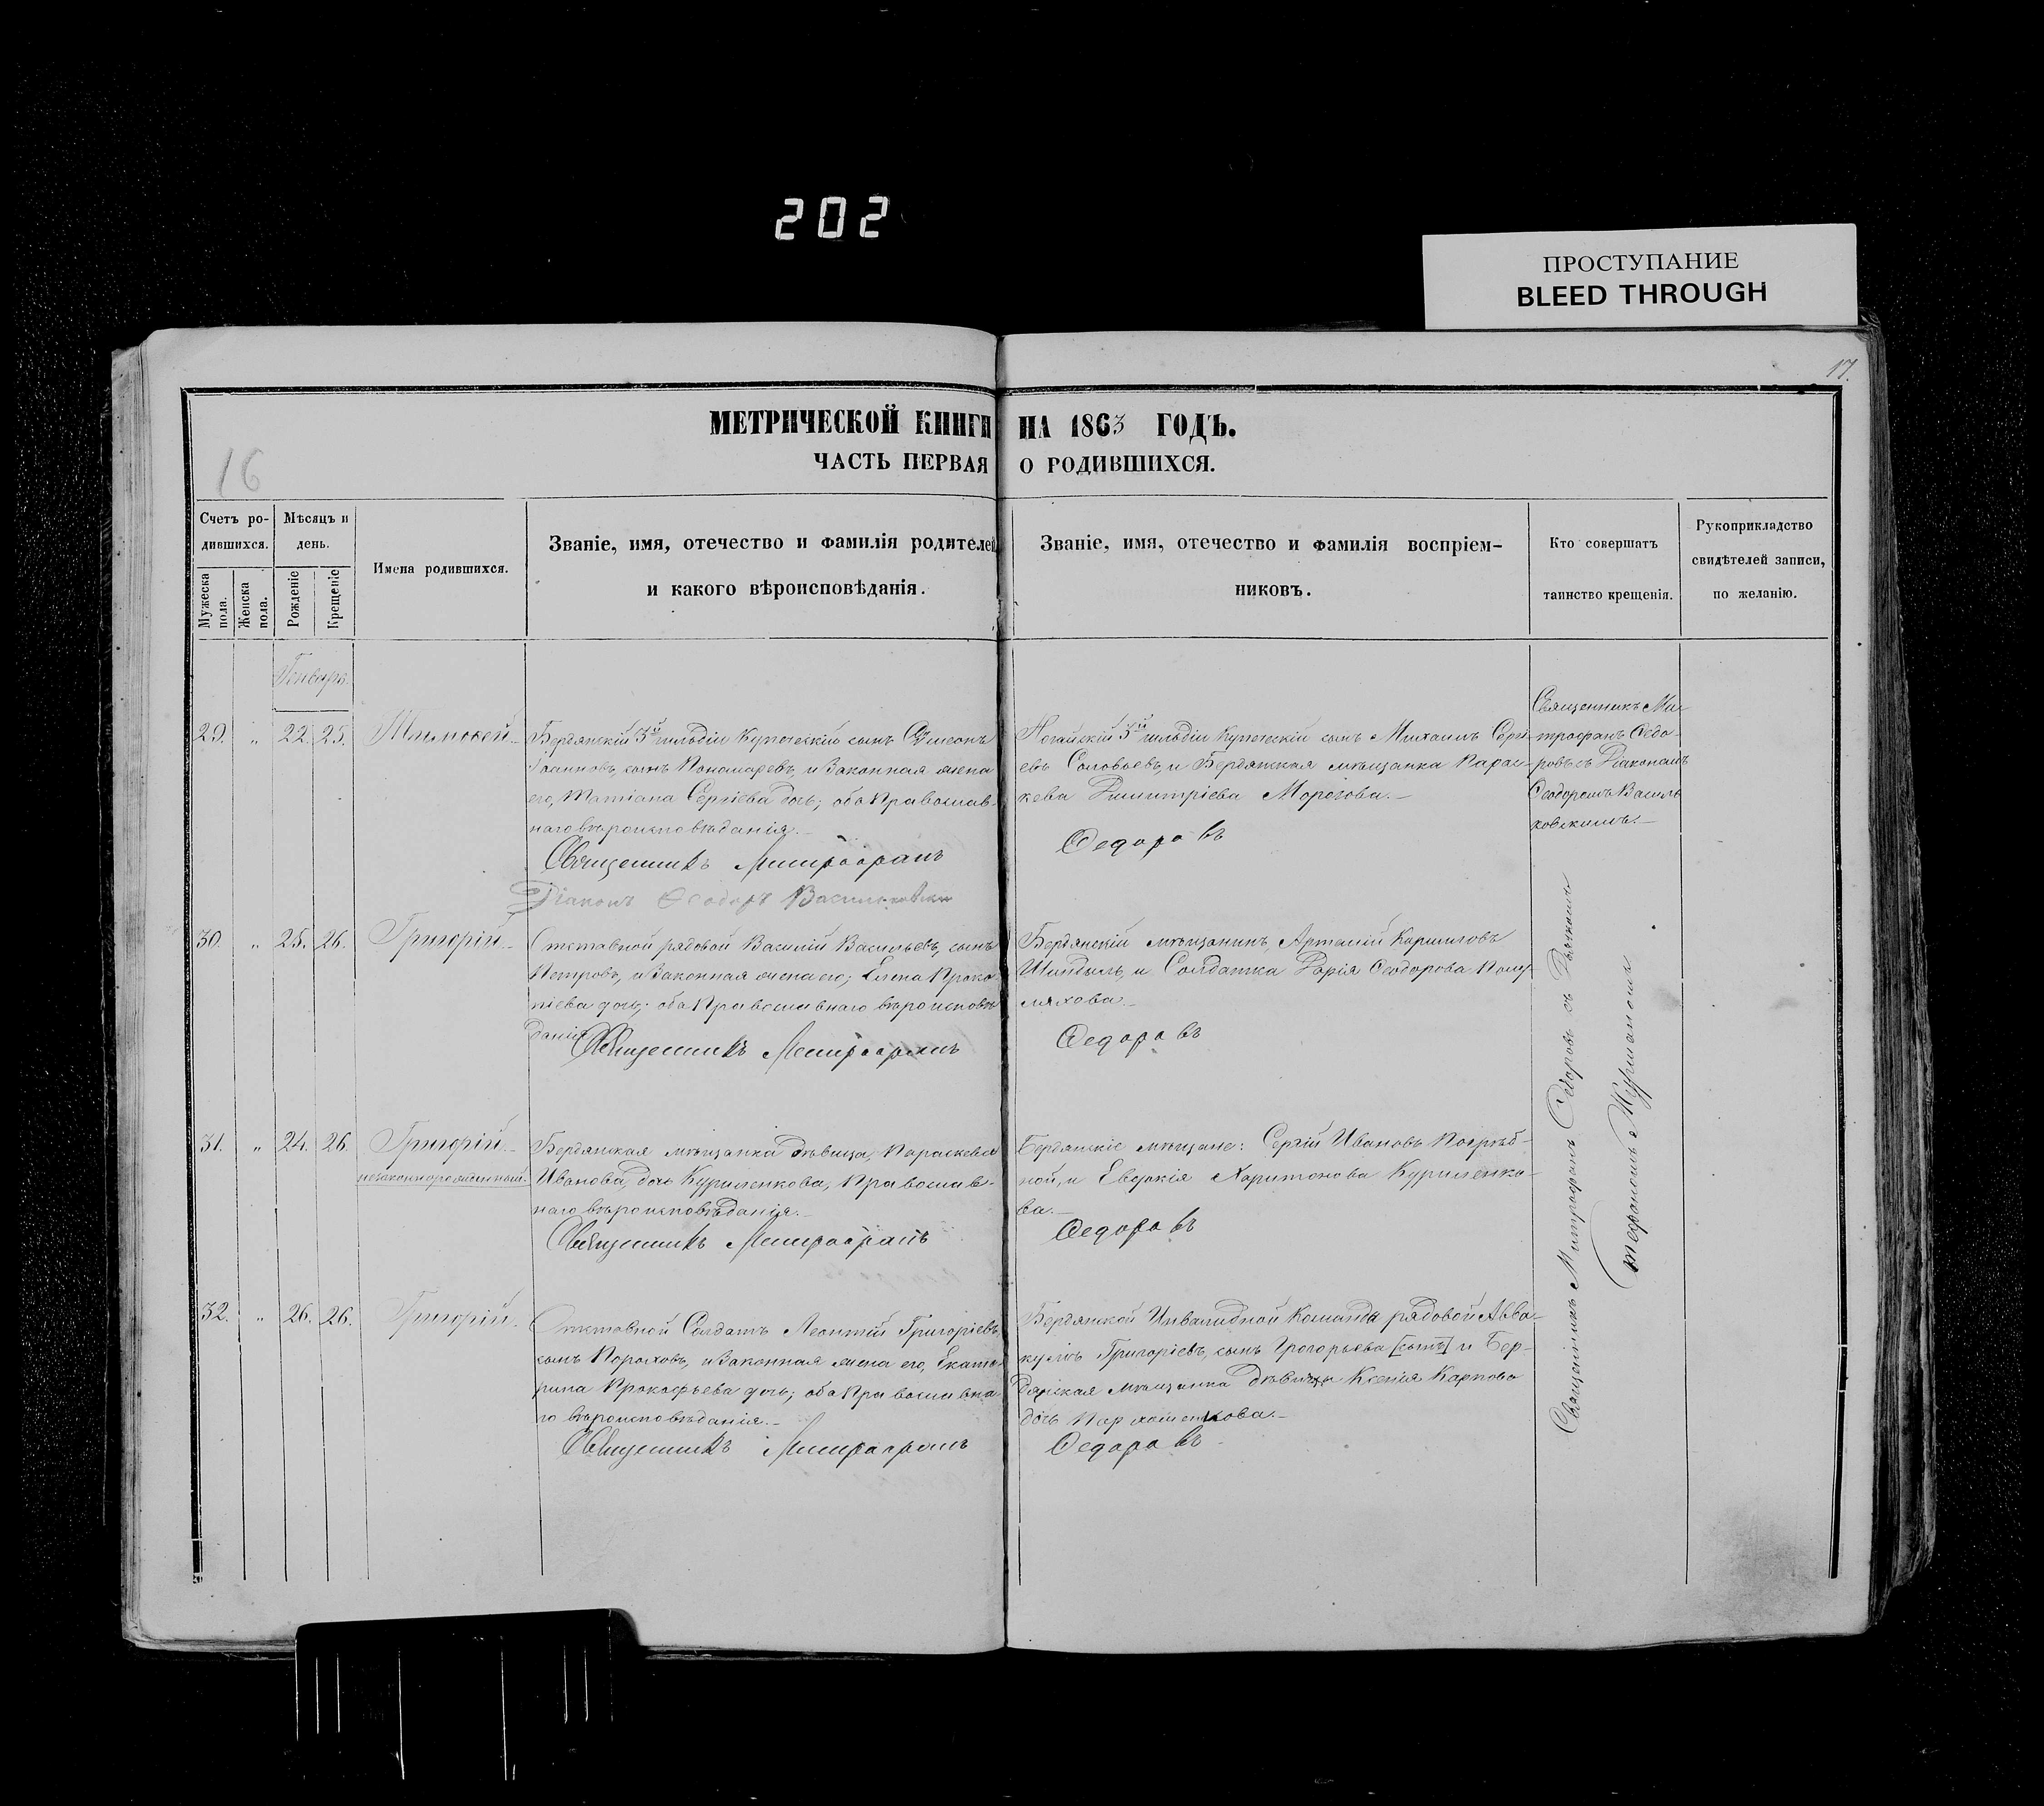 202
ПРОСТУПАНИЕ
BLEED THROUGH
17.
16
МЕТРИЧЕСКОЙ КНИГИ НА 1863 ГОДЪ.
ЧАСТЬ ПЕРВАЯ О РОДИВШИХСЯ.
Счетъ ро-
дившихся.
Мужеска пола.
Женска пола.
Мѣсяцъ и
день.
Рожденіе
Крещеніе
Имена родившихся.
Званіе, имя, отечество и фамилія родителей
и какого вѣроисповѣданія.
Званіе, имя, отечество и фамилія воспріем-
никовъ.
Кто совершатъ
таинство крещенія.
Рукоприкладство
свидѣтелей записи,
по желанію.
Генварь.
29. " 22. 25. Тимофей
Бердянскій 3й гильдіи Купеческій сынъ Симеонъ
Іоанновъ, сынъ Пономаревъ, и Законная жена
его, Татіана Сергіева дочь; оба Православ-
наго вѣроисповѣданія.
Священникъ Митрофанъ
Діаконъ Ѳеодоръ Васильковскій
Ногайскій 3й гильдіи Купеческій сынъ Михаилъ Серги-
евъ Соловьевъ, и Бердянская мѣщанка Парас-
кева Димитріева Морозова.
Ѳедоровъ
Священникъ Ми-
трофанъ Ѳедо-
ровъ съ Діакономъ
Ѳеодоромъ Василь
ковскимъ.
30. " 25. 26. Григорій
Отставной рядовой Василій Васильевъ, сынъ
Петровъ, и Законная жена его; Елена Проко
піева дочь; оба Православнаго вѣроисповѣ
данія
Священникъ Митрофанъ
Бердянскій мѣщанинъ, Артемій
и Солдатка Дарія Ѳеодорова
Ѳедоровъ
31. " 24. 26. Григорій
незаконнорожденный.
Бердянская мѣщанка дѣвица, Параскева
Иванова, дочь Куриленкова, Православ-
наго вѣроисповѣданія.
Священникъ Митрофанъ
Бердянскіе мѣщане: Сергій Ивановъ Погрѣб-
ной, и Евдокія Харитонова Куриленко-
ва.
Ѳедоровъ
32. " 26. 26. Григорій
Отставной Солдатъ Леонтій Григоріевъ,
сынъ Пороховъ, и Законная жена его, Екате-
рина Прокофьева дочь; оба Православна-
го вѣроисповѣданія.
Священникъ Митрофанъ
Бердянской Инвалидной Команды рядовой Авва-
кумъ Григоріевъ, сынъ Григорьева [сынъ] и Бер-
дянская мѣщанка дѣвица Ксенія Карпова
дочь Пархоменкова.
Ѳедоровъ
Священникъ Митрофанъ Ѳедоровъ съ Дьячкомъ
Стефаномъ